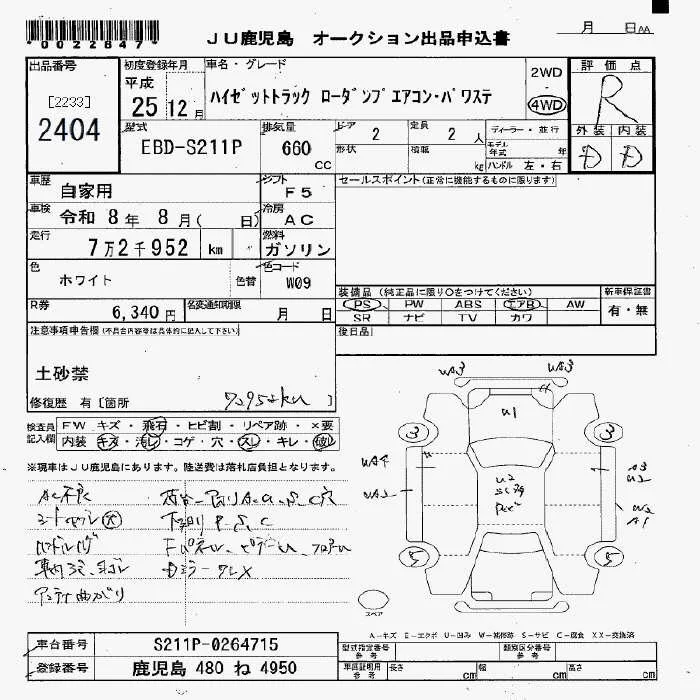 *0022647*
JU鹿児島 オークション出品申込書
月 日AA
出品番号
[2233]
2404
初度登録年月
平成
25 12月
車名・グレード
ハイゼットトラック ローダンプエアコン・パワステ
2WD
4WD
評価点
R
外装 内装
D D
型式
EBD-S211P
排気量
660
CC
ドア
2
定員
2 人
形状
積載
kg
ディーラー・並行
モデル年式 年
ハンドル 左・右
車歴
自家用
シフト
F5
セールスポイント(正常に機能するものに限ります)
車検
令和 8年 8月( 日)
冷房
AC
走行
7万2千952 km
燃料
ガソリン
色
ホワイト
色替
色コード
W09
R券
6,340 円
名変通知期限
月 日
装備品 (純正品に限り○をつけてください)
PS PW ABS エアB AW
SR ナビ TV カワ
新車保証書
有・無
後日品
注意事項申告欄(不具合内容等は具体的に記入して下さい)
土砂禁
修復歴 有[箇所 72952km ]
検査員記入欄
FW キズ・飛石・ヒビ割・リペア跡・×要
内装 キズ・汚レ・コゲ・穴・スレ・キレ・破レ
※現車はJU鹿児島にあります。陸送費は落札店負担となります。
AC不良
アンテナ曲がり
UA3 UA3
U1
3 3
UA4
UA2
A3
U2
U2
A1
5 5
スペア
A-キズ E-エクボ U-凹み W-補修跡 S-サビ C-腐食 XX-交換済
車台番号
S211P-0264715
登録番号
鹿児島 480 ね 4950
型式指定番号
参考
類別区分番号
参考
車両証明用
参考
長さ cm
幅 cm
高さ cm